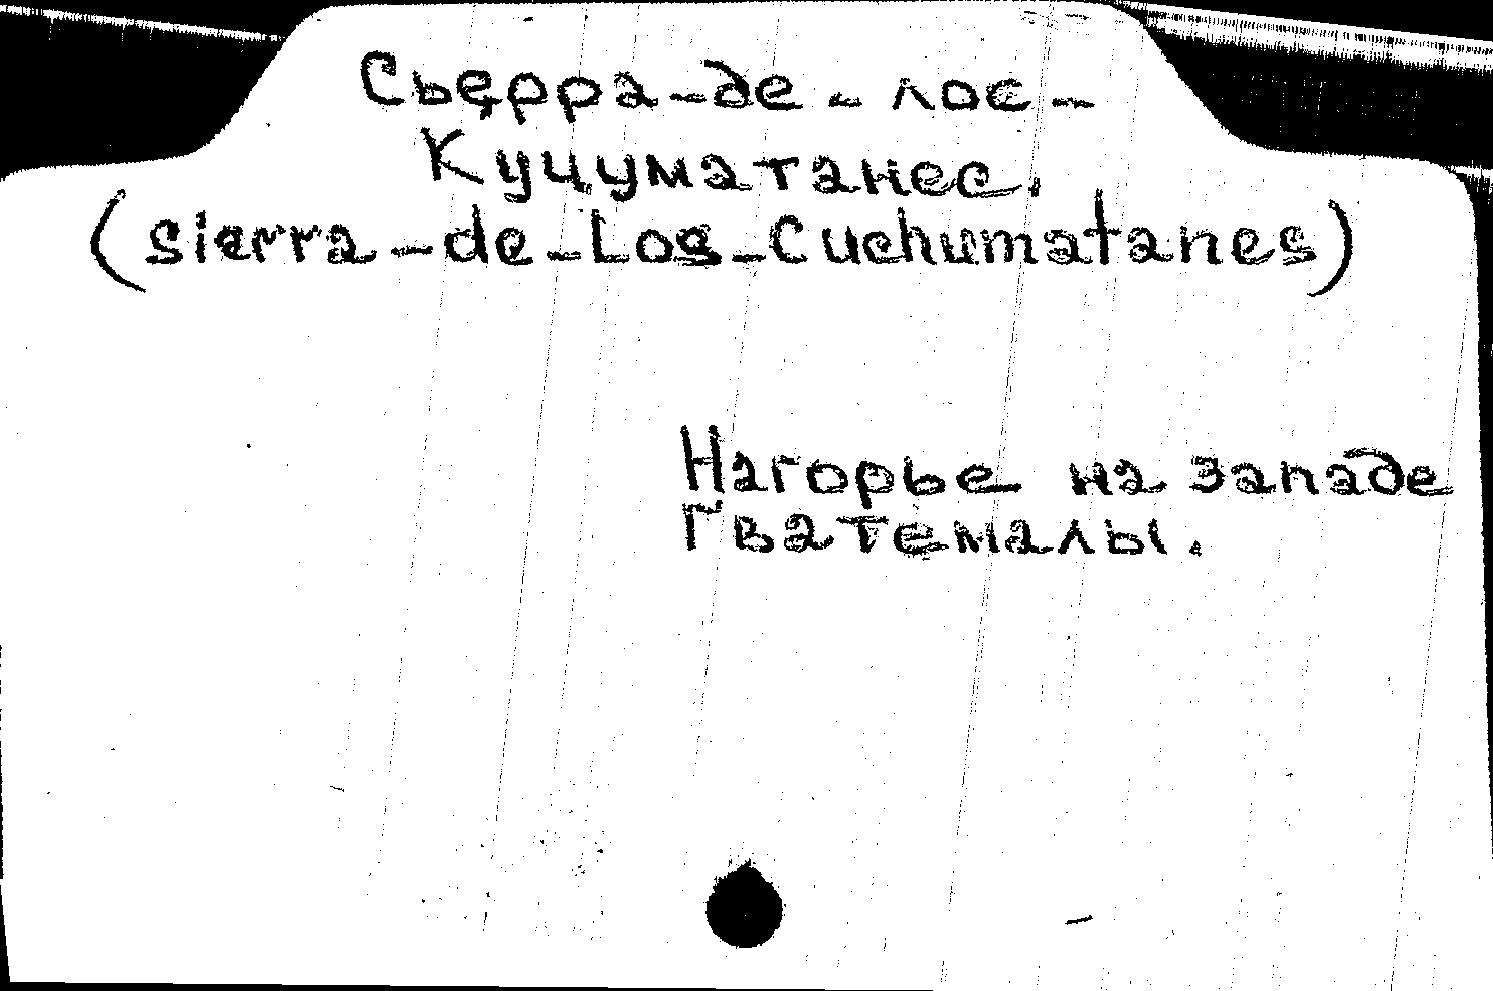 Сьерра-де-лос-
Кучуматанес.
(Sierra-de-Los-Cuchumatanes)
Нагорье на западе
Гватемалы.